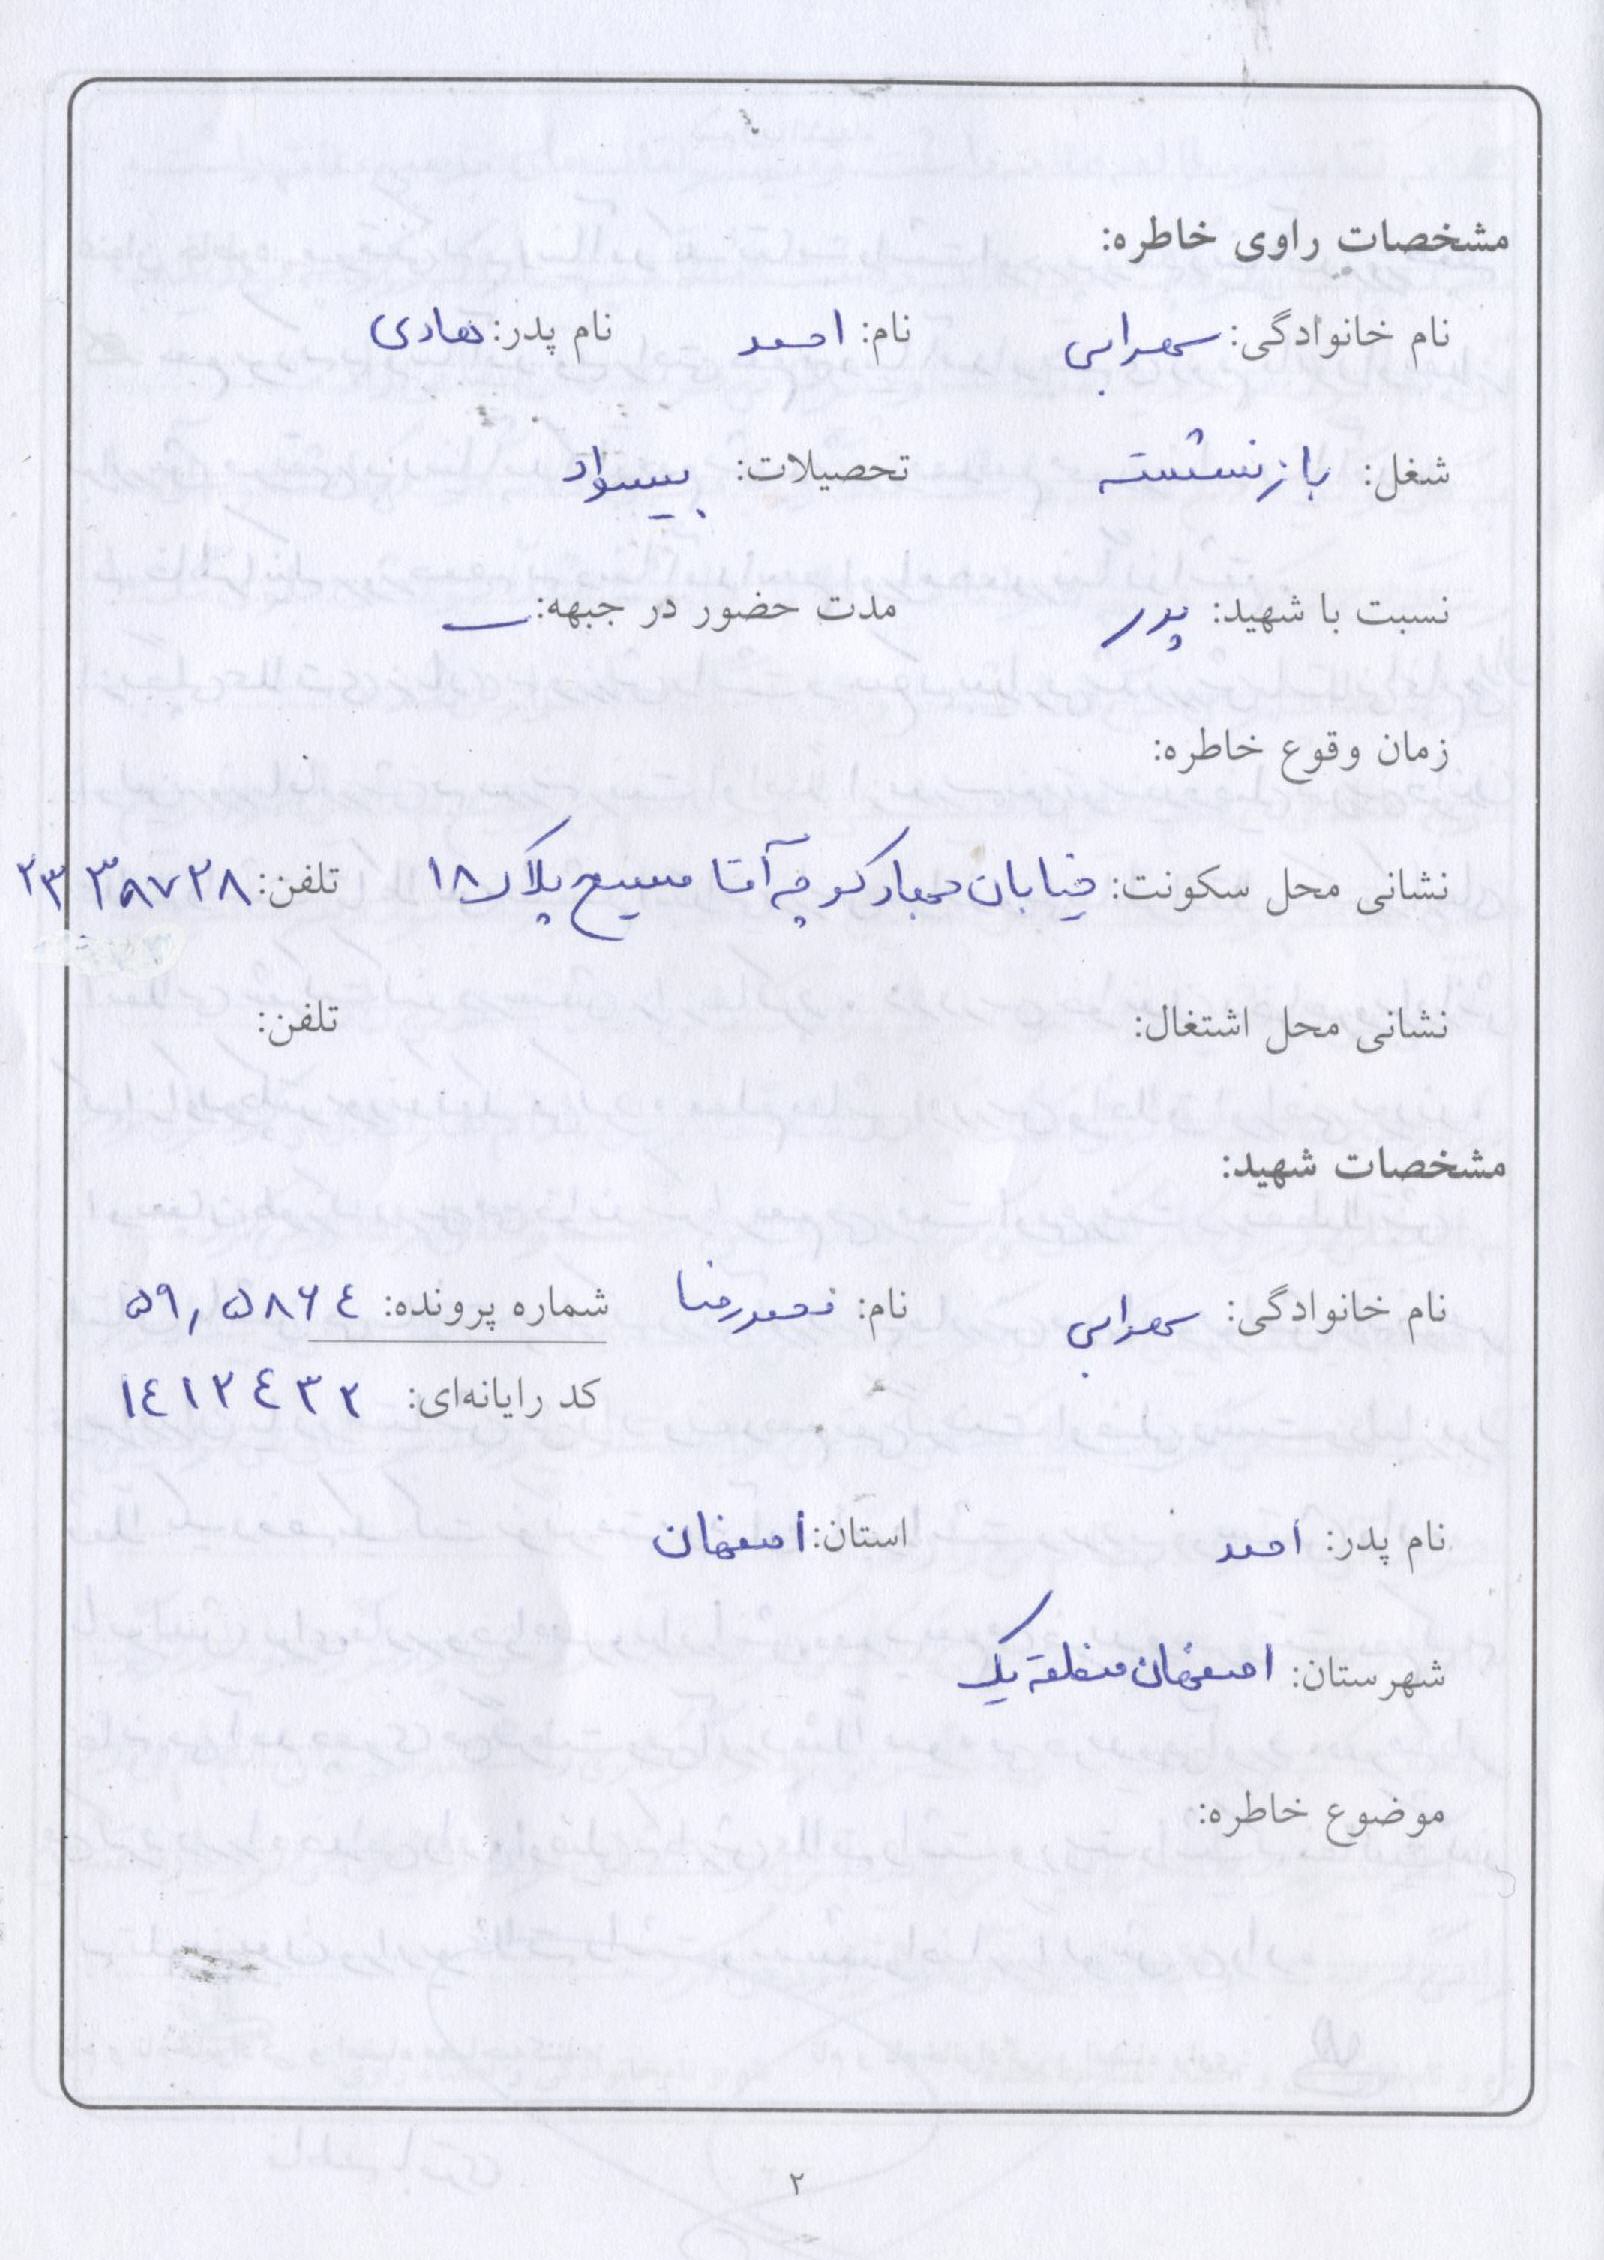 مشخصات راوی خاطره:
نام خانوادگی: سهرابی نام: احمد نام پدر: هادی
شغل: بازنشسته تحصیلات: بیسواد
نسبت با شهید: پدر مدت حضور در جبهه: ــ
زمان وقوع خاطره:
نشانی محل سکونت: خیابان کوچه آقا مسیح پلاک ۱۸ تلفن: ۲۳۳۸۷۲۸
نشانی محل اشتغال: تلفن:
مشخصات شهید:
نام خانوادگی: سهرابی نام: محمدرضا شماره پرونده: ۵۹٫۵۸۶۴
کد رایانه‌ای: ۱۴۱۲۴۳۲
نام پدر: احمد استان: اصفهان
شهرستان: اصفهان منطقه یک
موضوع خاطره:
۲